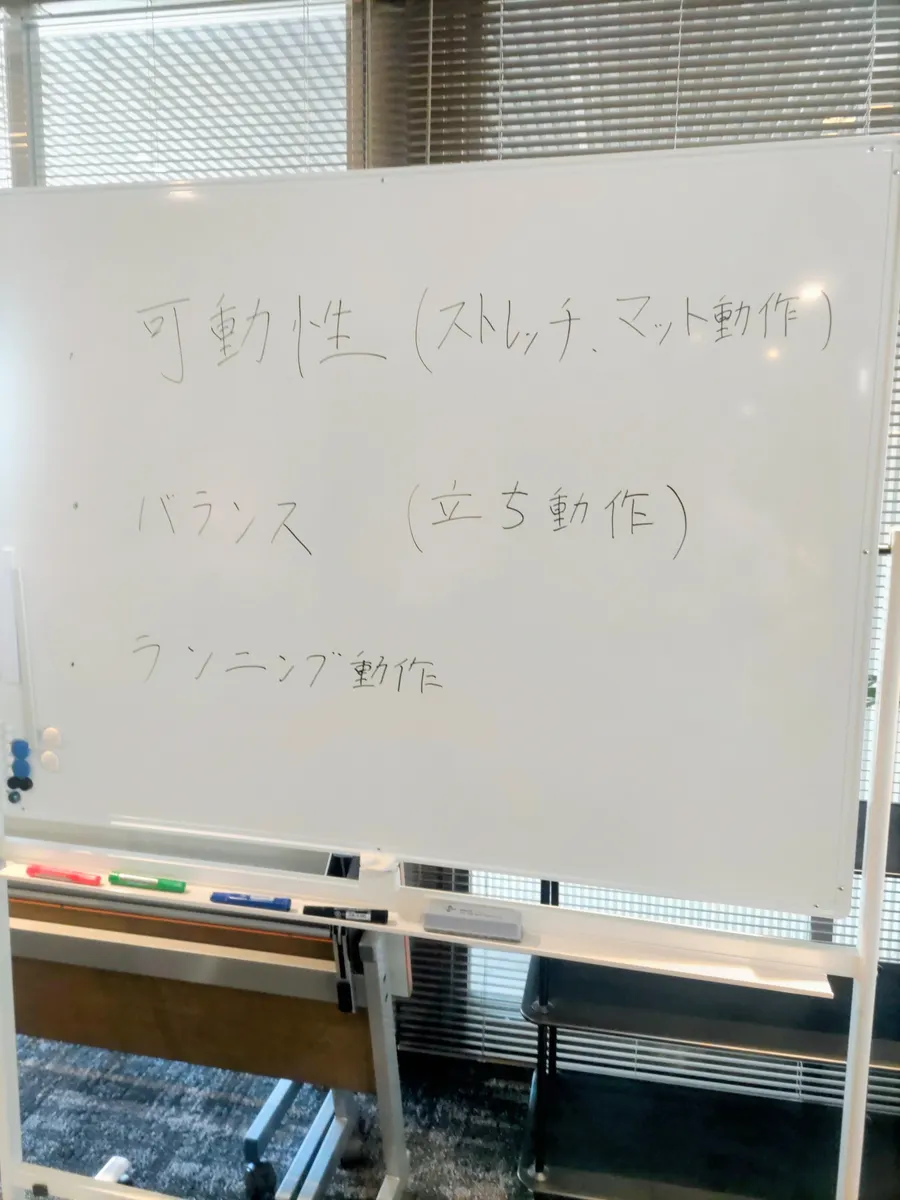 ・可動性(ストレッチ、マット動作)
・バランス (立ち動作)
・ランニング動作